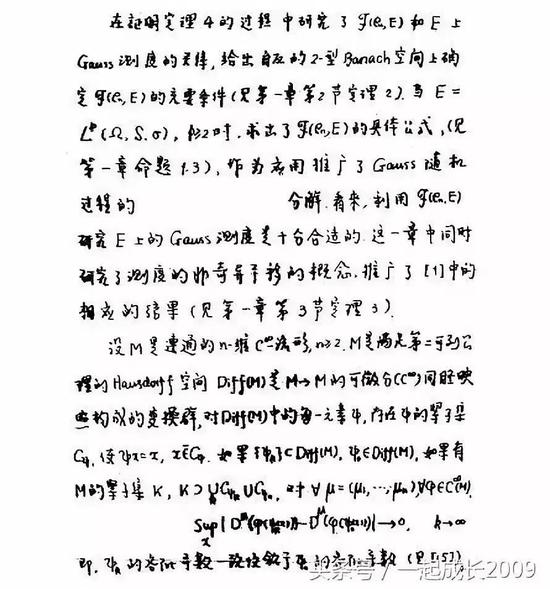 在证明定理4的过程中研究了 𝒯(ℓ₂,E) 和 E 上
Gauss 测度的关系, 给出自反的2-型 Banach 空间上确
定 𝒯(ℓ₂,E) 的充要条件(见第一章第2节定理2). 当 E =
Lᵖ(Ω, S, σ), 时, 求出了 𝒯(ℓ₂,E) 的具体公式, (见
第一章命题1.3), 作为应用推广了 Gauss 随机
过程的 分解. 看来, 利用 𝒯(ℓ₂,E)
研究 E 上的 Gauss 测度是十分合适的. 这一章中同时
研究了测度的非奇异平移的概念, 推广了 [1] 中的
相应的结果 (见第一章第3节定理3).
设 M 是连通的 n-维 C^∞-流形, n≥2. M 是满足第二可列公
理的 Hausdorff 空间 Diff(M) 是 M→M 的可微分(C^∞)同胚映
构成的变换群, 对 Diff(M) 中的每一元素ψ, 存在ψ的紧子集
C_ψ, 使 ψx=x, x∈C_ψ. 如果 {ψₙ}⊂Diff(M), ∈Diff(M), 如果有
M 的紧子集 K, K⊃ 对 ∀ μ = (μ₁, ⋯, μₙ), ∀φ∈C^∞(M),
Sup | →0, k→∞
x
即, 的各阶导数一致收敛于 的各阶导数 (见[15])
头条号 / 一起成长2009